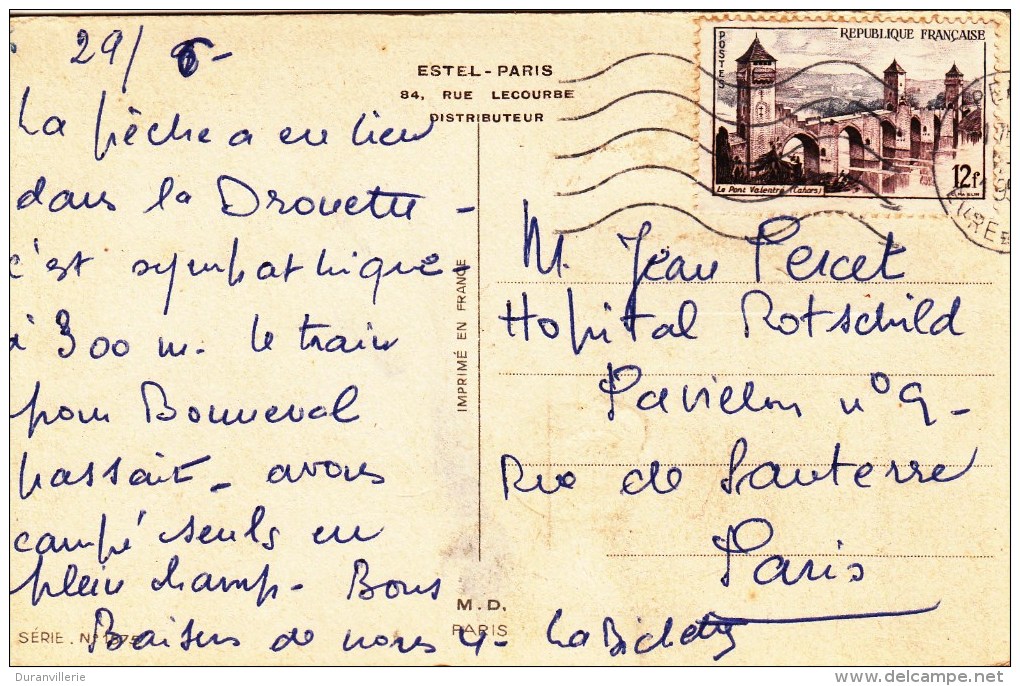 29/6-
La pêche a eu lieu
dans la Drouette -
c'est sympathique
à 300 m. le train
pour Bonneval
passait - avons
campé seuls en
plein champ - Bons
Baisers de nous 4 -
ESTEL-PARIS
84, RUE LECOURBE
DISTRIBUTEUR
IMPRIMÉ EN FRANCE
M.D.
PARIS
SÉRIE . N°
POSTES
REPUBLIQUE FRANÇAISE
Le Pont Valentré (Cahors)
12f
M. Jean Percet
Hopital Rotschild
Pavillon n° 9 -
Rue de Santerre
Paris
Duranvillerie
delcampe.net